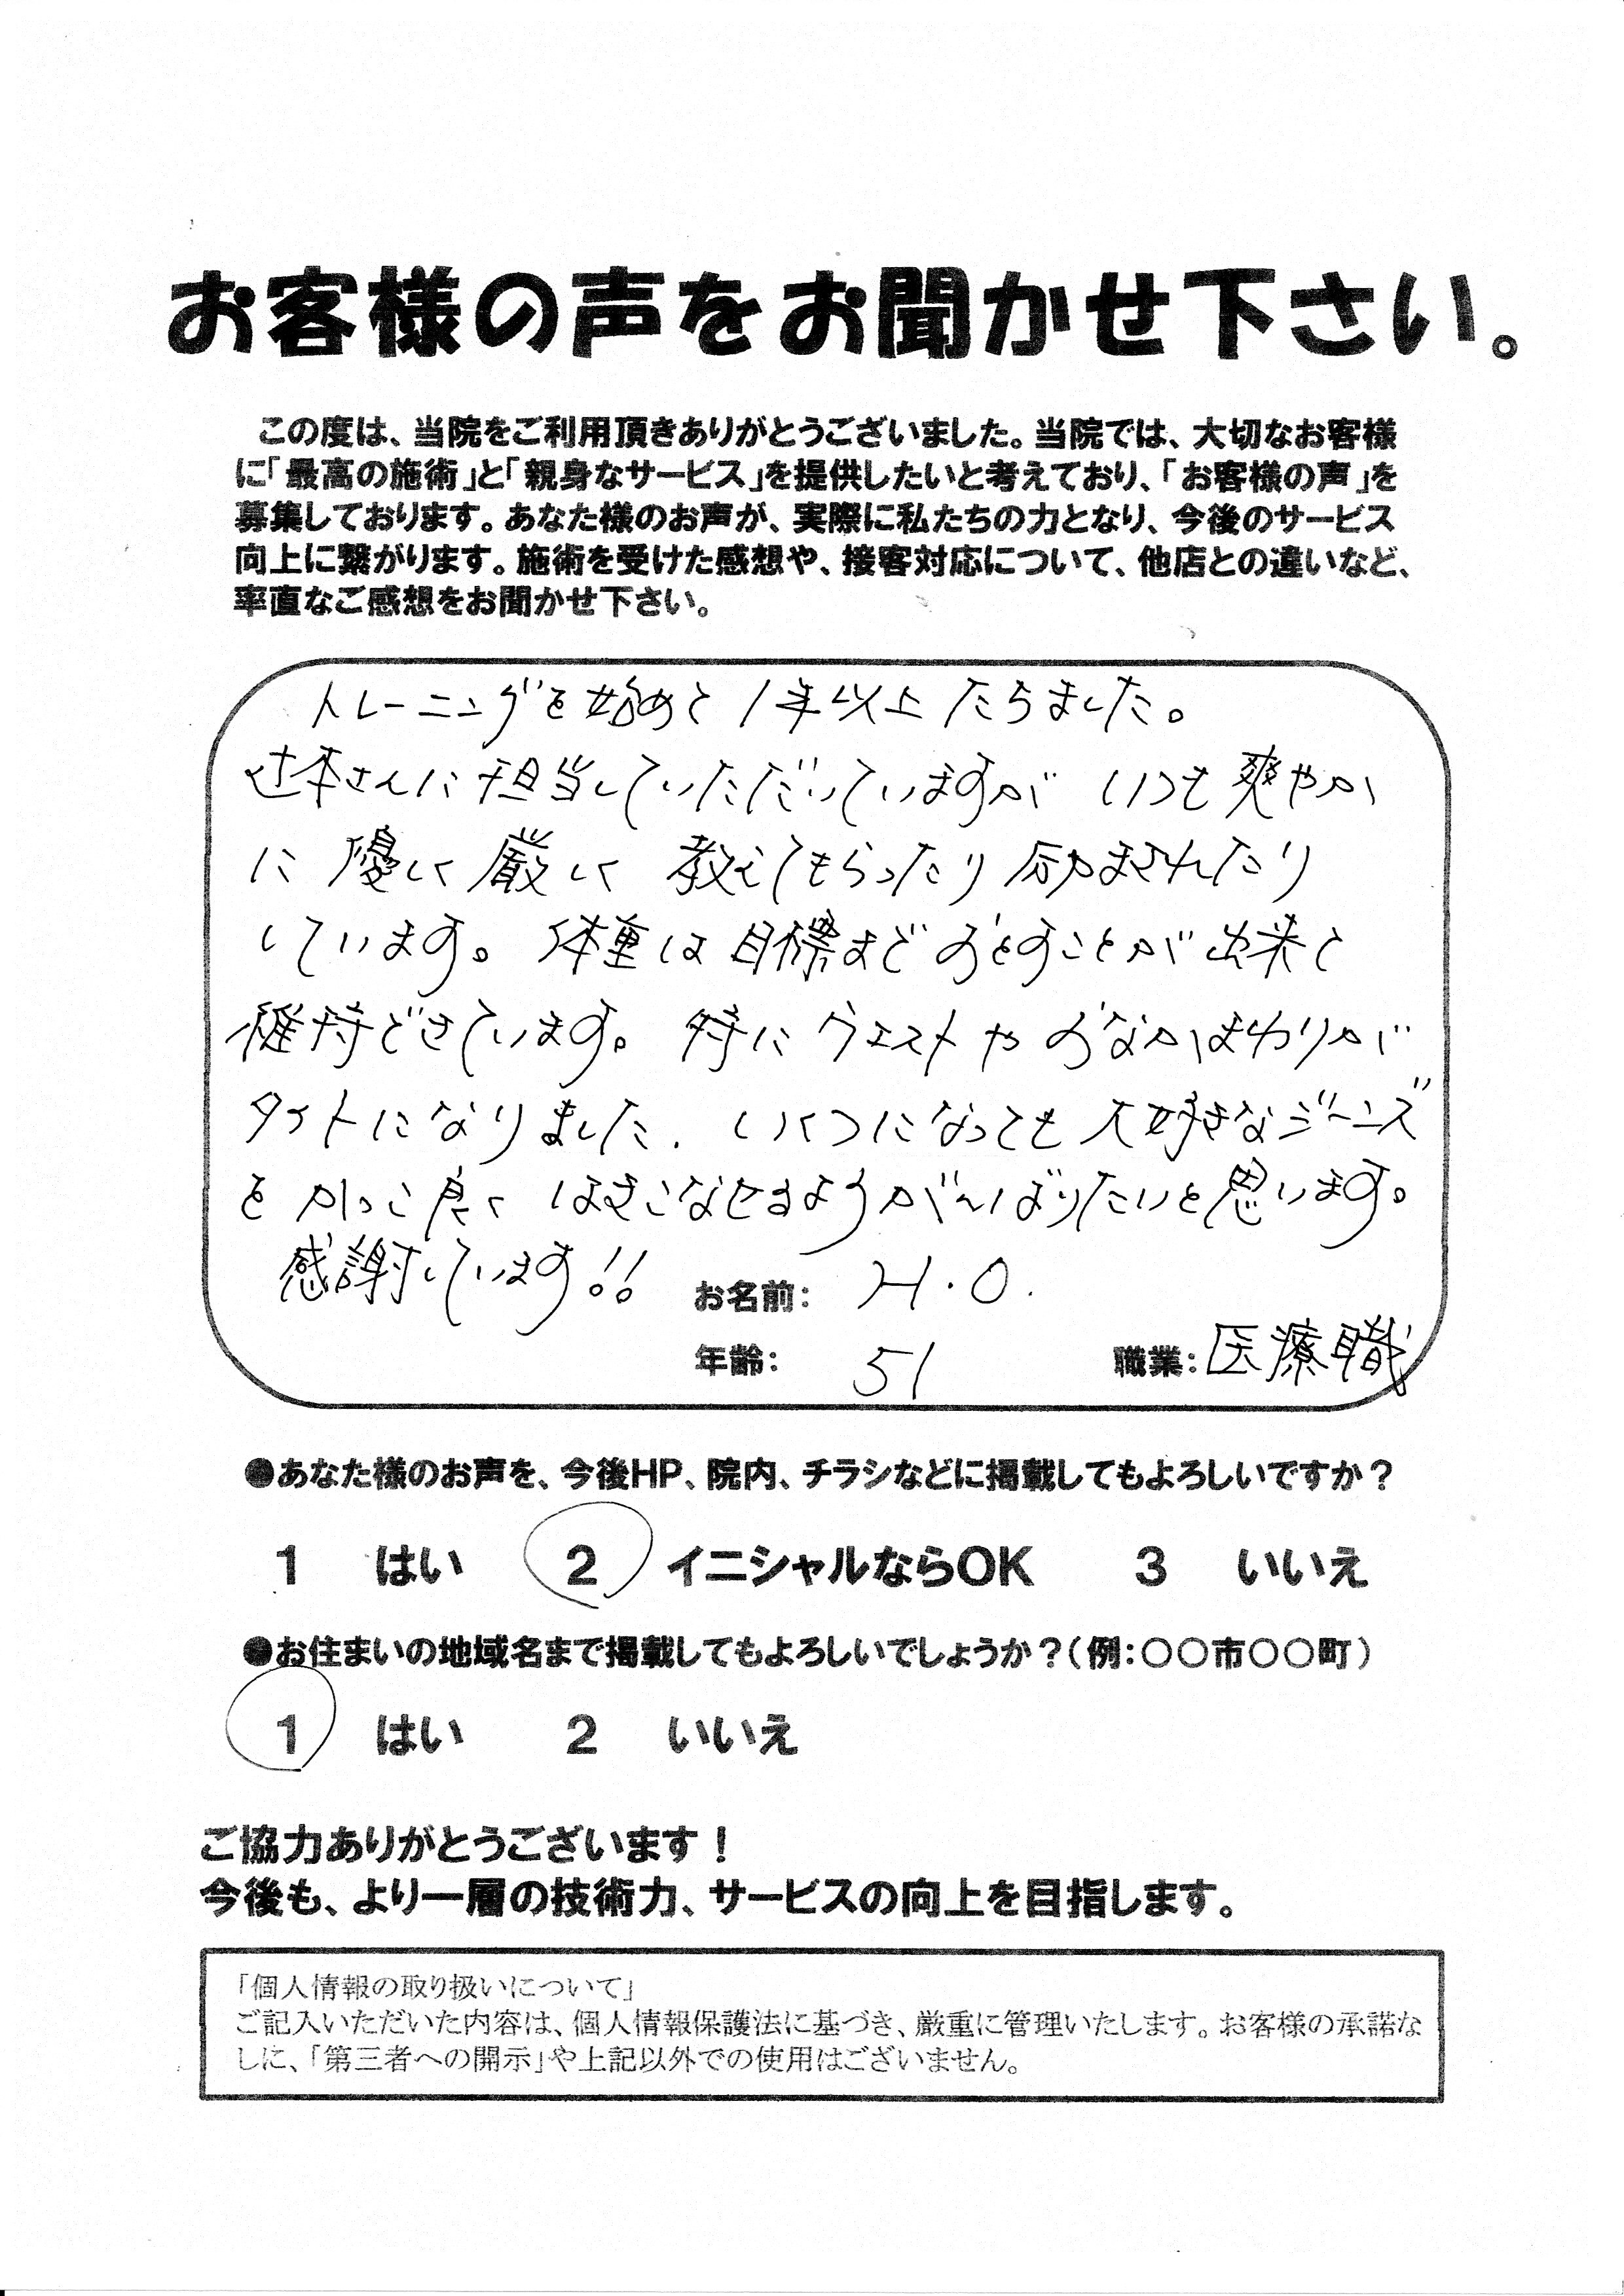 お客様の声をお聞かせ下さい。
この度は、当院をご利用頂きありがとうございました。当院では、大切なお客様
に「最高の施術」と「親身なサービス」を提供したいと考えており、「お客様の声」を
募集しております。あなた様のお声が、実際に私たちの力となり、今後のサービス
向上に繋がります。施術を受けた感想や、接客対応について、他店との違いなど、
率直なご感想をお聞かせ下さい。
トレーニングを始めて1年以上たちました。
辻本さんに担当していただいていますが いつも爽やか
に優しく厳しく 教えてもらったり 励まされたり
しています。体重は目標までおとすことが出来て
維持できています。特にウエストやおなかまわりが
タイトになりました. いくつになっても大好きなジーンズ
をかっこ良くはきこなせるようがんばりたいと思います。
感謝しています!!
お名前: H・O.
年齢: 51 職業: 医療職
●あなた様のお声を、今後HP、院内、チラシなどに掲載してもよろしいですか？
1 はい 2 イニシャルならOK 3 いいえ
●お住まいの地域名まで掲載してもよろしいでしょうか？（例：〇〇市〇〇町）
1 はい 2 いいえ
ご協力ありがとうございます！
今後も、より一層の技術力、サービスの向上を目指します。
「個人情報の取り扱いについて」
ご記入いただいた内容は、個人情報保護法に基づき、厳重に管理いたします。お客様の承諾な
しに、「第三者への開示」や上記以外での使用はございません。